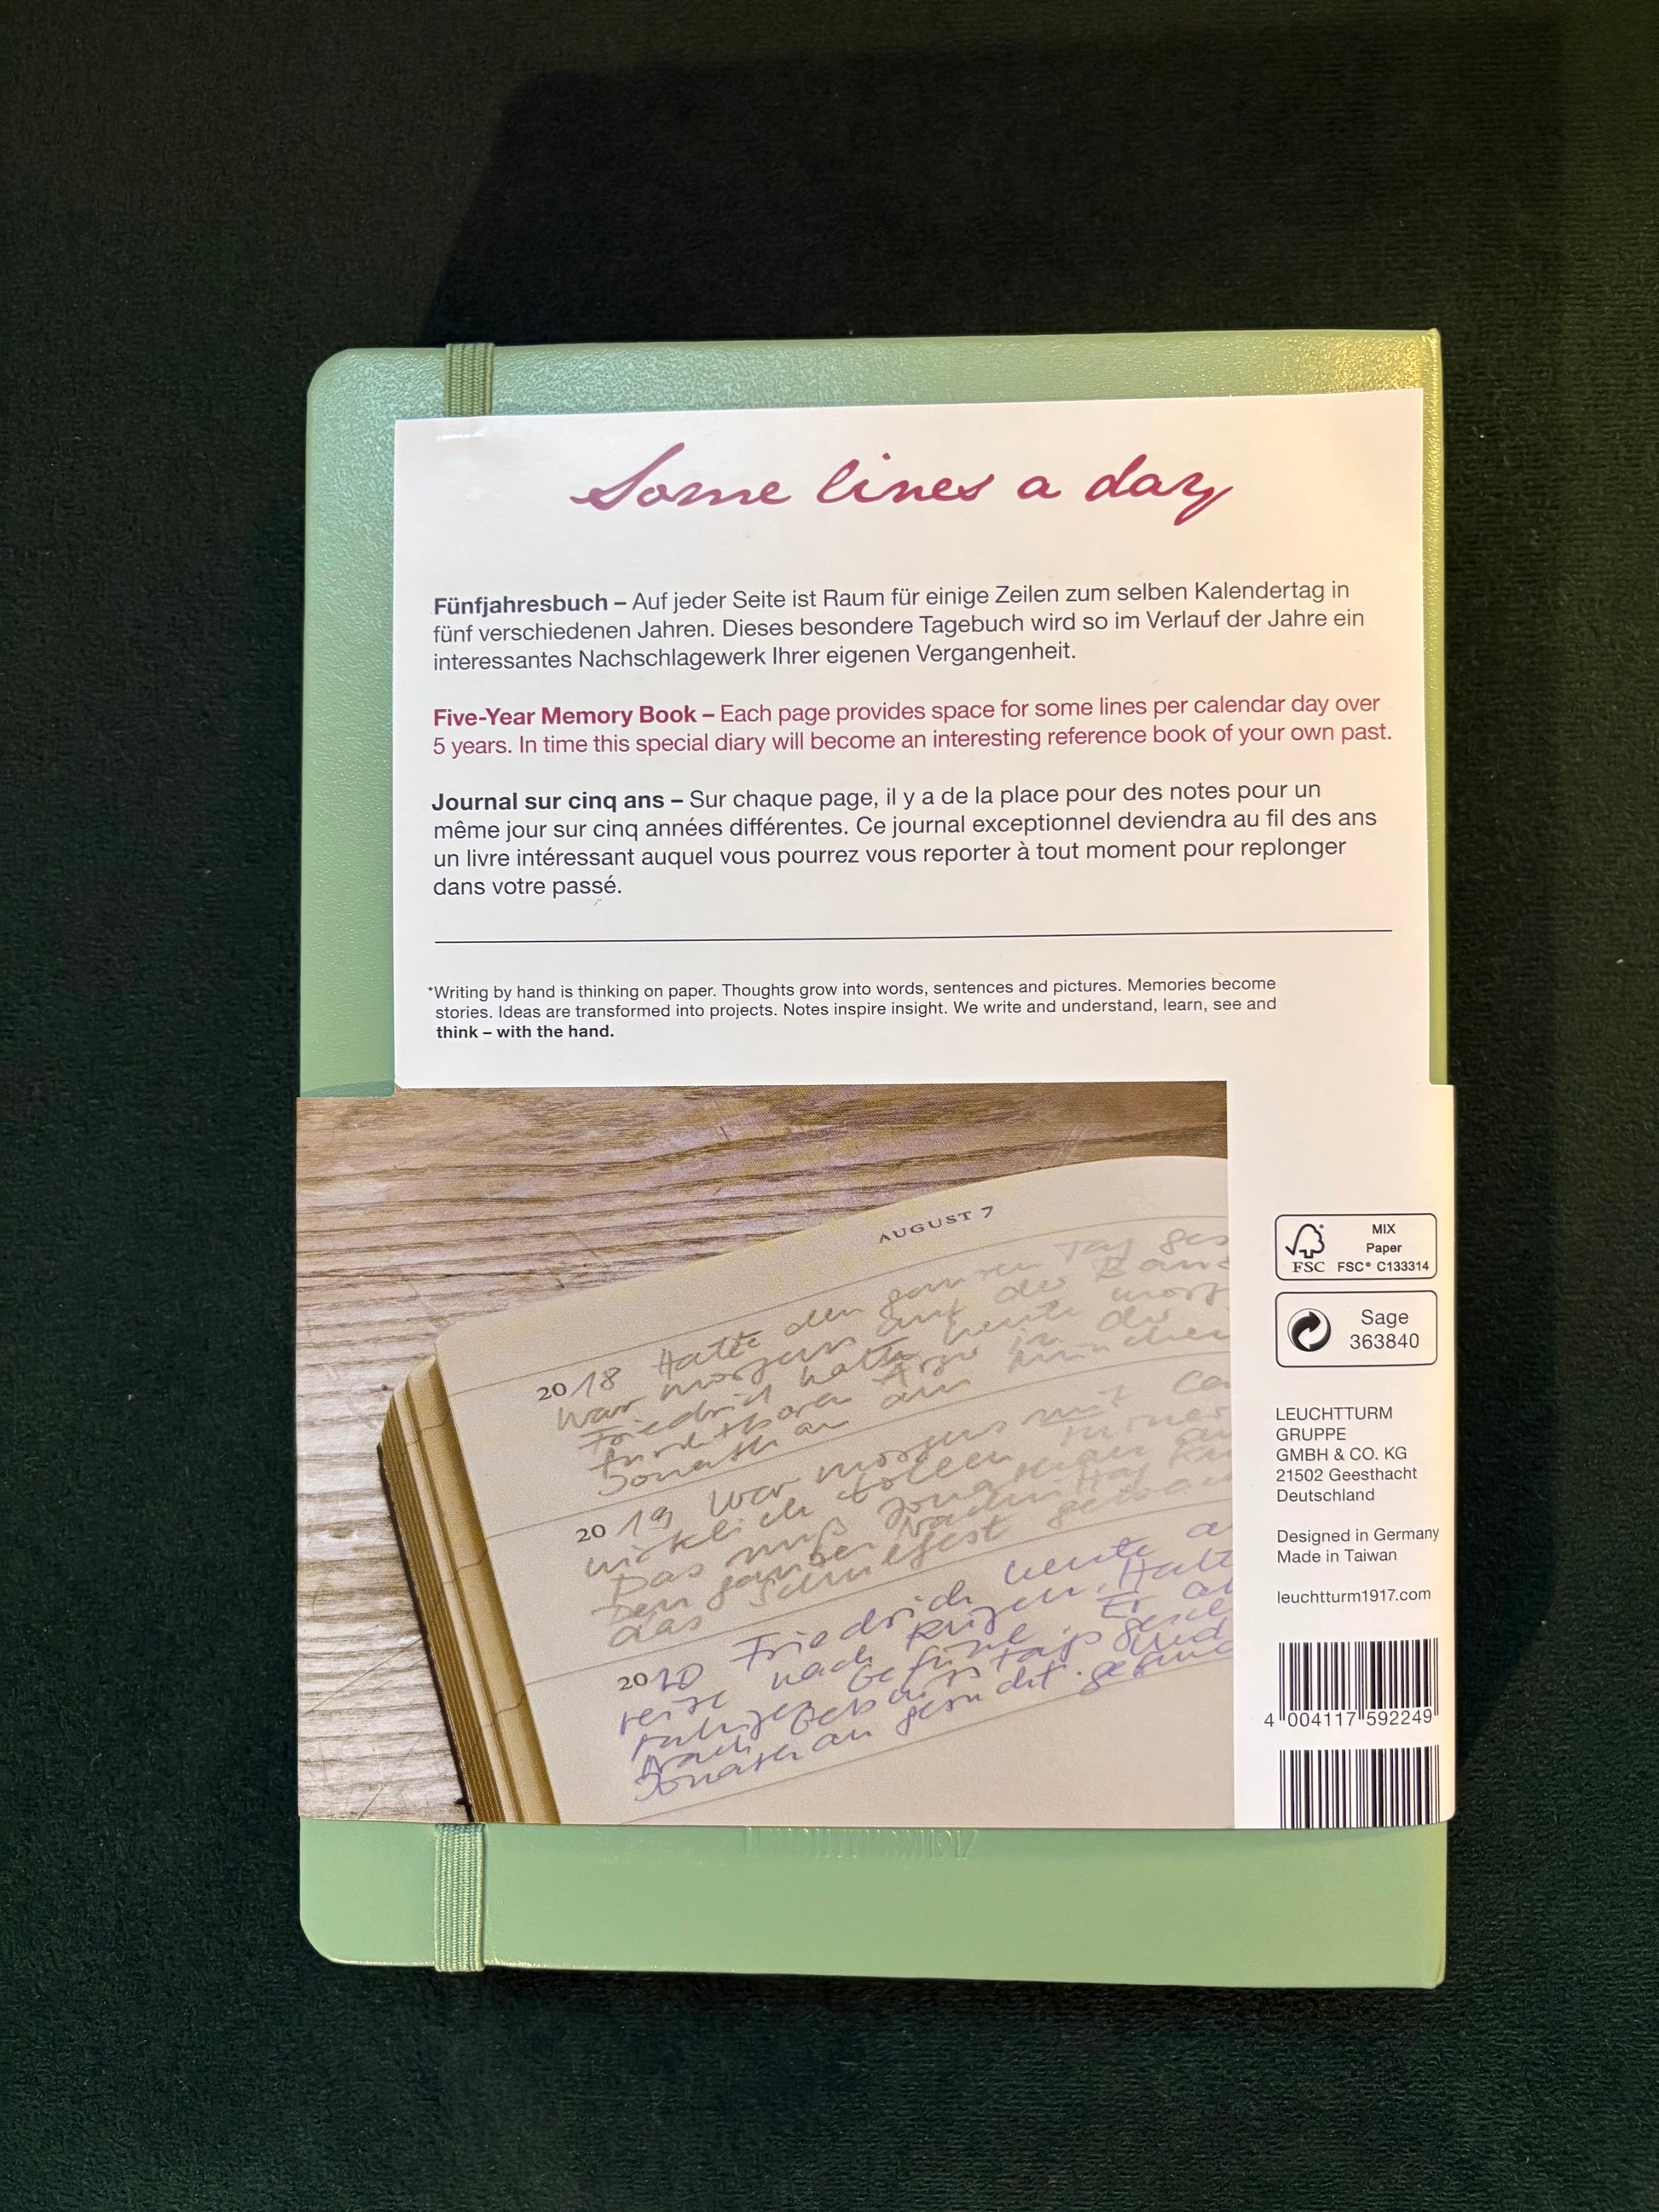 Some lines a day
Fünfjahresbuch – Auf jeder Seite ist Raum für einige Zeilen zum selben Kalendertag in
fünf verschiedenen Jahren. Dieses besondere Tagebuch wird so im Verlauf der Jahre ein
interessantes Nachschlagewerk Ihrer eigenen Vergangenheit.
Five-Year Memory Book – Each page provides space for some lines per calendar day over
5 years. In time this special diary will become an interesting reference book of your own past.
Journal sur cinq ans – Sur chaque page, il y a de la place pour des notes pour un
même jour sur cinq années différentes. Ce journal exceptionnel deviendra au fil des ans
un livre intéressant auquel vous pourrez vous reporter à tout moment pour replonger
dans votre passé.
*Writing by hand is thinking on paper. Thoughts grow into words, sentences and pictures. Memories become
stories. Ideas are transformed into projects. Notes inspire insight. We write and understand, learn, see and
think – with the hand.
AUGUST 7
2018 Hatte den ganzen Tag
war morgens auf der
Friedrich hatte heute
Jonathan am
2019 War morgens mit
wirklich tollen
Das muß
Den ganzen
das Schulfest
2020 Friedrich heute
reise nach Rügen. Hatte
Gefühl. Er
Geburtstags
nach und
Jonathan gesucht.
MIX
Paper
FSC FSC® C133314
Sage
363840
LEUCHTTURM
GRUPPE
GMBH & CO. KG
21502 Geesthacht
Deutschland
Designed in Germany
Made in Taiwan
leuchtturm1917.com
4 004117 592249